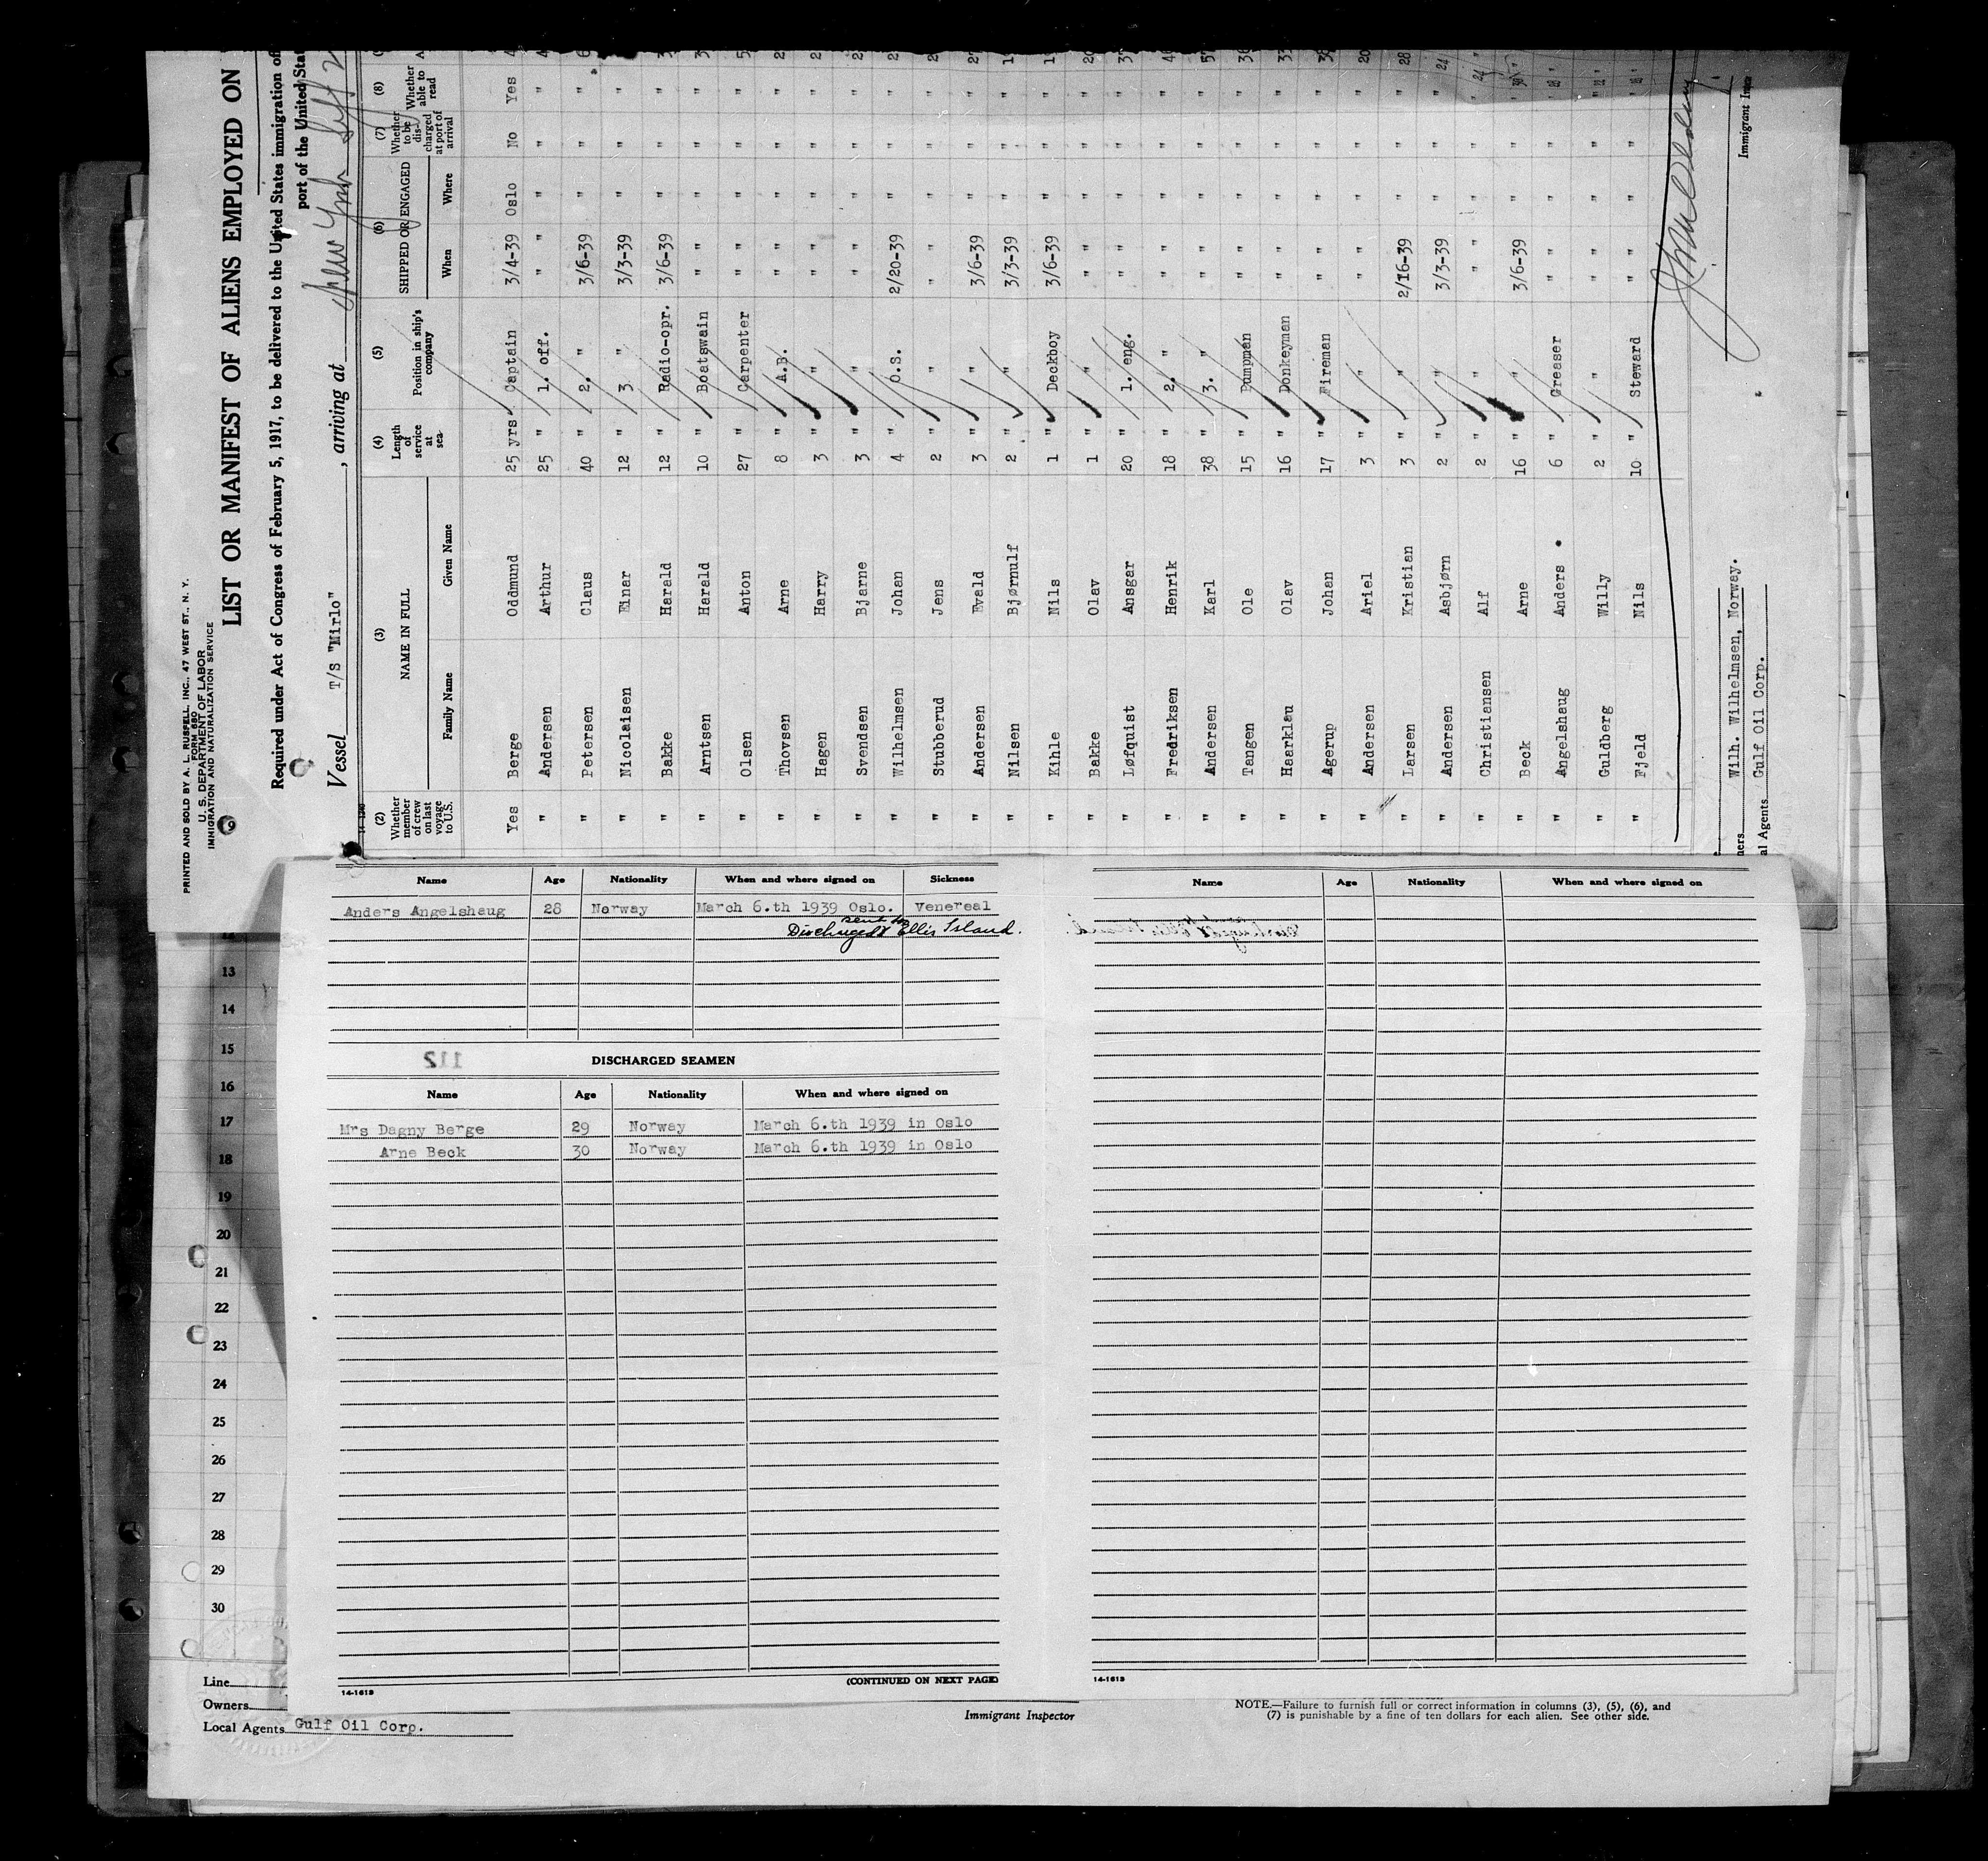 PRINTED AND SOLD BY A. L. RUSSELL, INC., 47 WEST ST., N. Y.
FORM 680
U. S. DEPARTMENT OF LABOR
IMMIGRATION AND NATURALIZATION SERVICE
LIST OR MANIFEST OF ALIENS EMPLOYED ON
Required under Act of Congress of February 5, 1917, to be delivered to the United States immigration
port of the United
Vessel T/S "Mirlo" , arriving at New York
(2) (3) (4) (5) (6) (7) (8)
Whether member of crew on last voyage to U.S. NAME IN FULL Length of service at sea Position in ship's company SHIPPED OR ENGAGED Whether to be discharged at port of arrival Whether able to read
Family Name Given Name When Where
Yes Berge Oddmund 25 yrs Captain 3/4-39 Oslo No Yes
" Andersen Arthur 25 " 1. off. " " " "
" Petersen Claus 40 " 2. " 3/6-39 " " "
" Nicolaisen Einar 12 " 3 " 3/3-39 " " "
" Bakke Harald 12 " Radio-opr. 3/6-39 " " "
" Arntsen Harald 10 " Boatswain " " " " "
" Olsen Anton 27 " Carpenter " " " " "
" Thovsen Arne 8 " A.B. " " " " "
" Hagen Harry 3 " " " " " " "
" Svendsen Bjarne 3 " " " " " " "
" Wilhelmsen Johan 4 " O.S. 2/20-39 " " "
" Stubberud Jens 2 " " " " " "
" Andersen Evald 3 " " 3/6-39 " " "
" Nilsen Bjørnulf 2 " " 3/3-39 " " "
" Kihle Nils 1 " Deckboy 3/6-39 " " "
" Bakke Olav 1 " " " " " " "
" Løfquist Ansgar 20 " 1. eng. " " " " "
" Fredriksen Henrik 18 " 2. " " " " " "
" Andersen Karl 38 " 3. " " " " " "
" Tangen Ole 15 " Pumpman " " " " "
" Haarklau Olav 16 " Donkeyman " " " " "
" Agerup Johan 17 " Fireman " " " " "
" Andersen Ariel 3 " " " " " " "
" Larsen Kristian 3 " " 2/16-39 " " " 28
" Andersen Asbjørn 2 " " 3/3-39 " " " 24
" Christiansen Alf 2 " " " " " " " 24
" Beck Arne 16 " " 3/6-39 " " " 30
" Angelshaug Anders 6 " Greaser " " " " " 28
" Guldberg Willy 2 " " " " " " "
" Fjeld Nils 10 " Steward " " " " "
Wilh. Wilhelmsen, Norway.
Agents Gulf Oil Corp.
Immigrant
Name Age Nationality When and where signed on Sickness
Anders Angelshaug 28 Norway March 6.th 1939 Oslo. Venereal
sent to
Discharged & Ellis Island.
112
DISCHARGED SEAMEN
Name Age Nationality When and where signed on
Mrs Dagny Berge 29 Norway March 6.th 1939 in Oslo
Arne Beck 30 Norway March 6.th 1939 in Oslo
(CONTINUED ON NEXT PAGE)
14-1613
Name Age Nationality When and where signed on
14-1613
13
14
15
16
17
18
19
20
21
22
23
24
25
26
27
28
29
30
Line
Owners
Local Agents Gulf Oil Corp.
Immigrant Inspector
NOTE.—Failure to furnish full or correct information in columns (3), (5), (6), and
(7) is punishable by a fine of ten dollars for each alien. See other side.